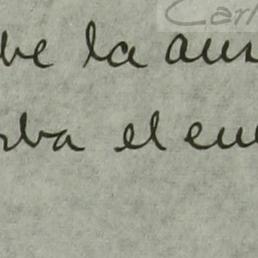 Carl
be la aus
rba el en